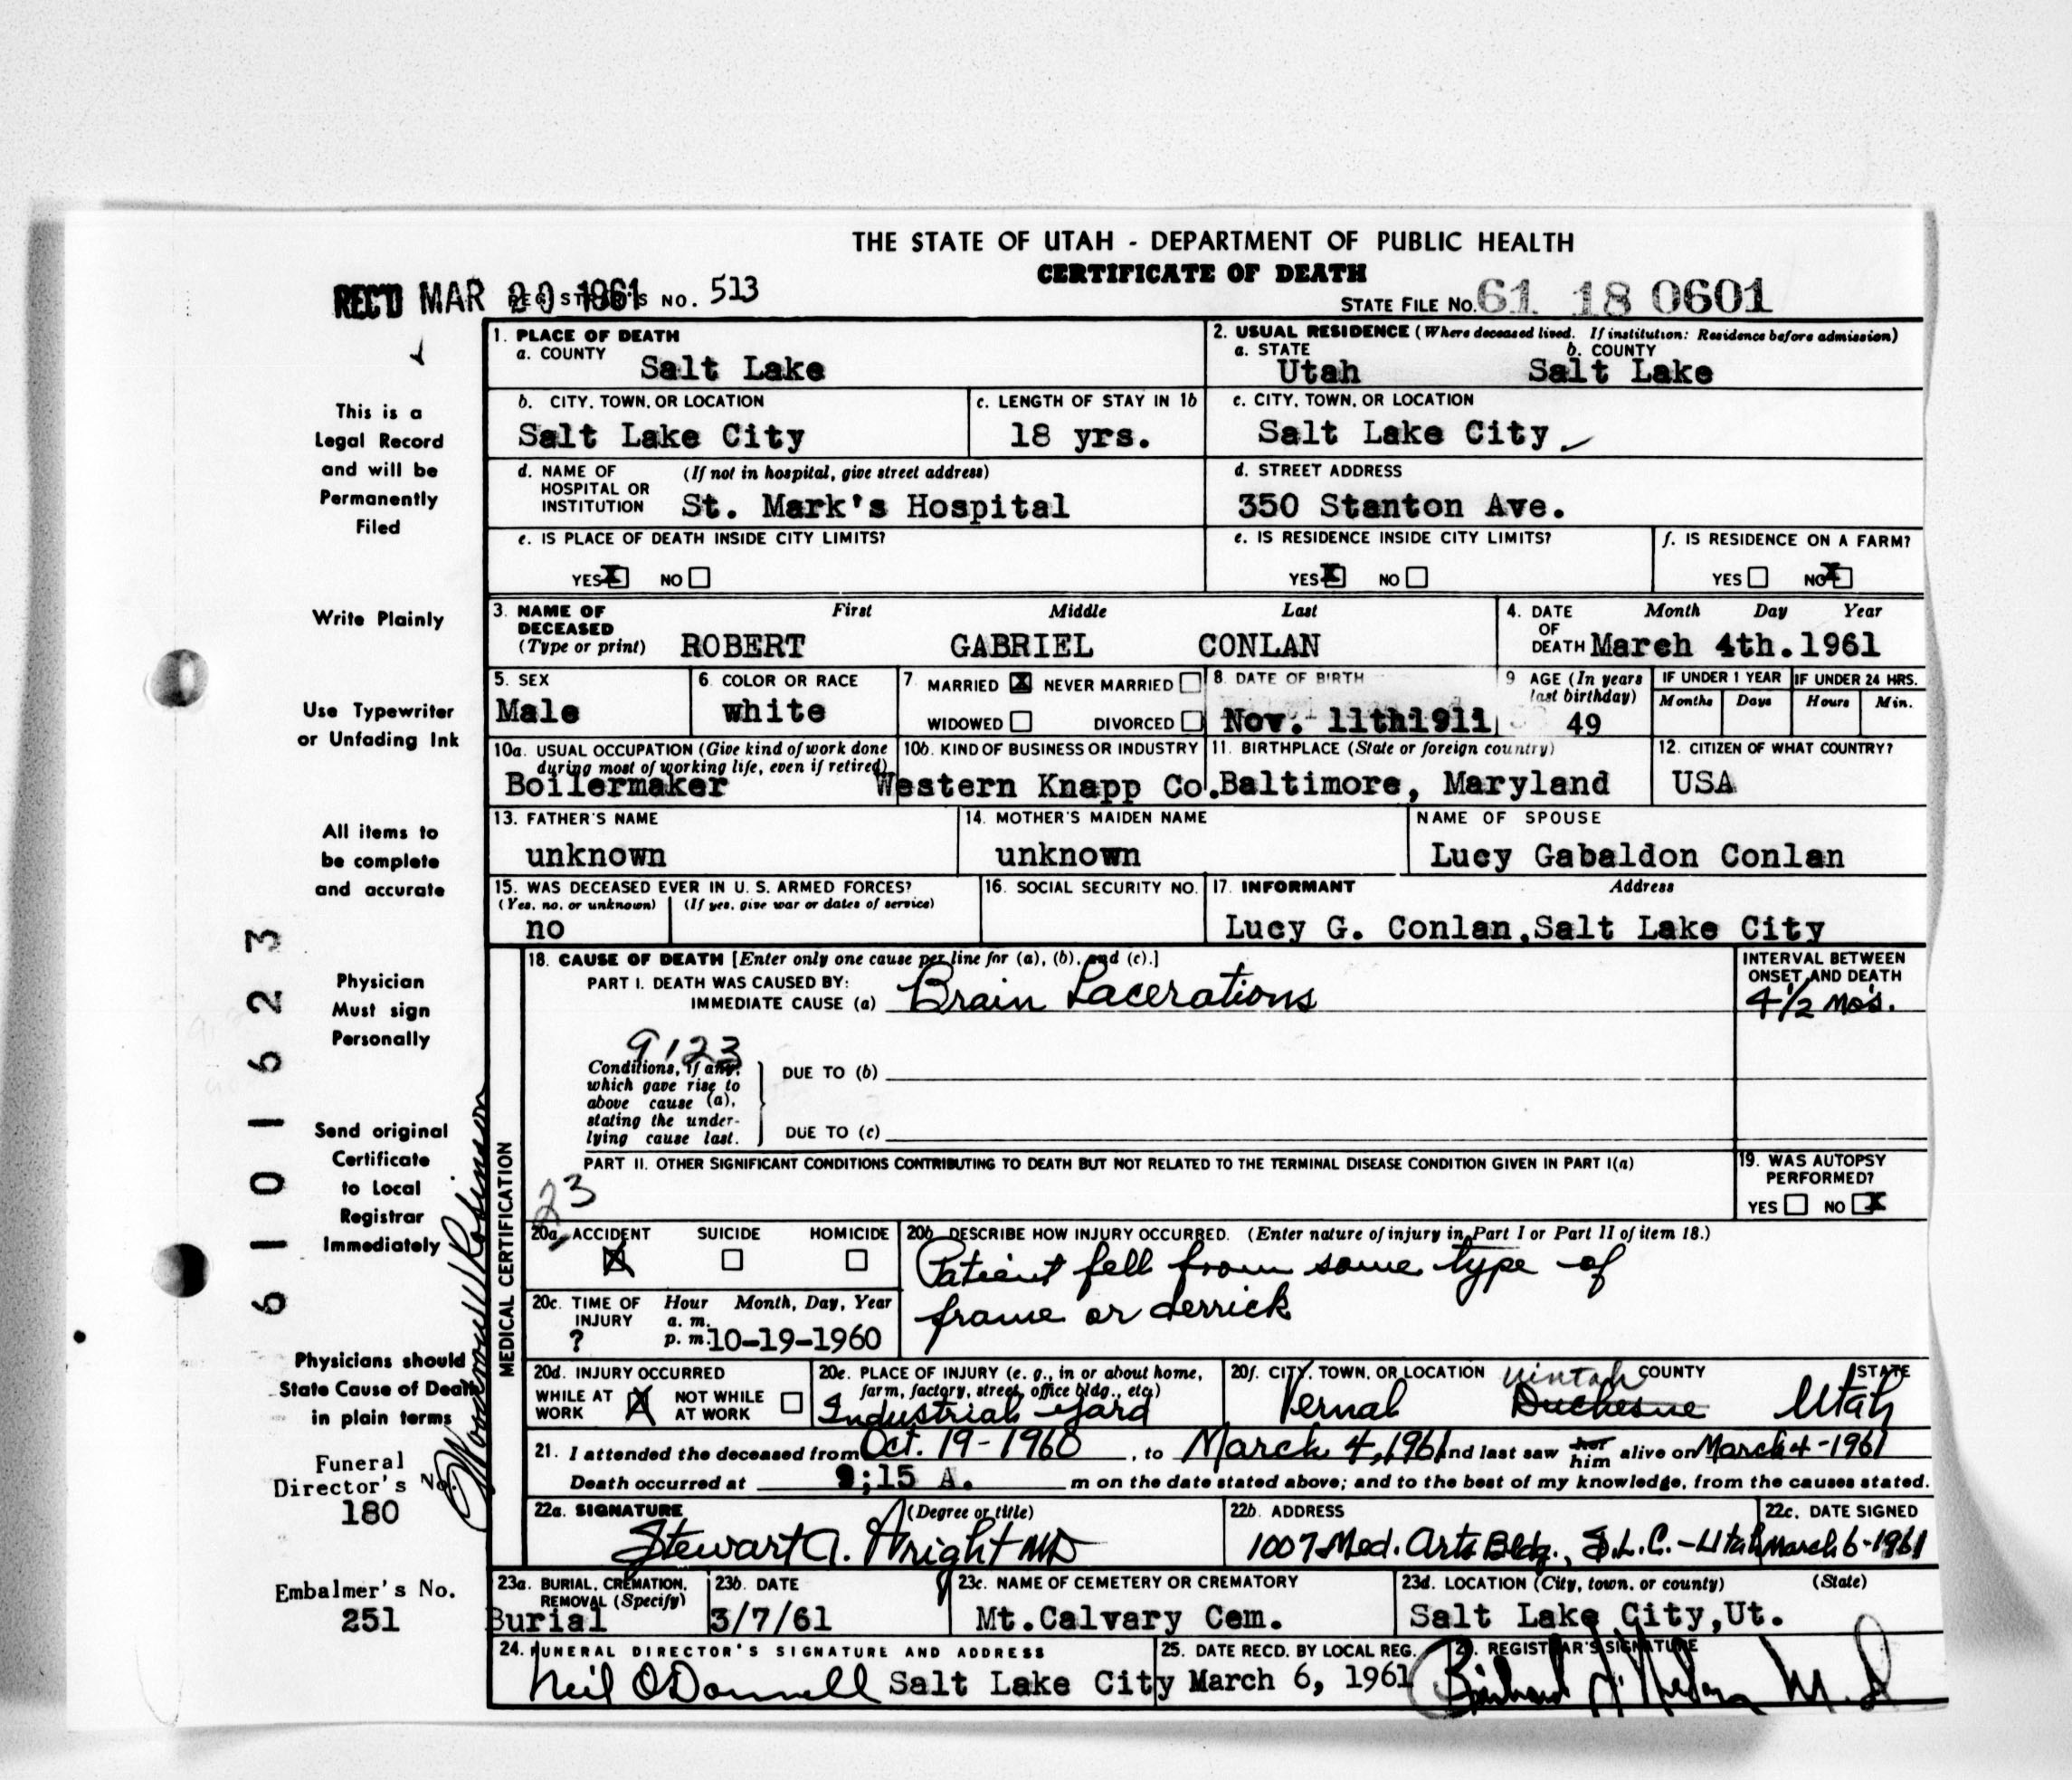 THE STATE OF UTAH - DEPARTMENT OF PUBLIC HEALTH
CERTIFICATE OF DEATH
REC'D MAR 20 1961
REGISTRAR'S NO. 513
STATE FILE NO. 61 18 0601
This is a
Legal Record
and will be
Permanently
Filed
Write Plainly
Use Typewriter
or Unfading Ink
All items to
be complete
and accurate
Physician
Must sign
Personally
Send original
Certificate
to Local
Registrar
Immediately
Physicians should
State Cause of Death
in plain terms
Funeral
Director's No.
180
Embalmer's No.
251
6101623
1. PLACE OF DEATH
a. COUNTY Salt Lake
2. USUAL RESIDENCE (Where deceased lived. If institution: Residence before admission)
a. STATE Utah b. COUNTY Salt Lake
b. CITY, TOWN, OR LOCATION Salt Lake City
c. LENGTH OF STAY IN 1b 18 yrs.
c. CITY, TOWN, OR LOCATION Salt Lake City
d. NAME OF HOSPITAL OR INSTITUTION (If not in hospital, give street address) St. Mark's Hospital
d. STREET ADDRESS 350 Stanton Ave.
e. IS PLACE OF DEATH INSIDE CITY LIMITS? YES X NO
e. IS RESIDENCE INSIDE CITY LIMITS? YES X NO
f. IS RESIDENCE ON A FARM? YES NO X
3. NAME OF DECEASED (Type or print) First Middle Last
ROBERT GABRIEL CONLAN
4. DATE OF DEATH Month Day Year March 4th.1961
5. SEX Male
6. COLOR OR RACE white
7. MARRIED X NEVER MARRIED
WIDOWED DIVORCED
8. DATE OF BIRTH Nov. 11th1911
9 AGE (In years last birthday) 49
IF UNDER 1 YEAR Months Days
IF UNDER 24 HRS. Hours Min.
10a. USUAL OCCUPATION (Give kind of work done during most of working life, even if retired) Boilermaker
10b. KIND OF BUSINESS OR INDUSTRY Western Knapp Co.
11. BIRTHPLACE (State or foreign country) Baltimore, Maryland
12. CITIZEN OF WHAT COUNTRY? USA
13. FATHER'S NAME unknown
14. MOTHER'S MAIDEN NAME unknown
NAME OF SPOUSE Lucy Gabaldon Conlan
15. WAS DECEASED EVER IN U. S. ARMED FORCES?
(Yes, no, or unknown) (If yes, give war or dates of service)
no
16. SOCIAL SECURITY NO.
17. INFORMANT Address
Lucy G. Conlan,Salt Lake City
MEDICAL CERTIFICATION
18. CAUSE OF DEATH [Enter only one cause per line for (a), (b), and (c).]
PART I. DEATH WAS CAUSED BY:
IMMEDIATE CAUSE (a) Brain Lacerations
INTERVAL BETWEEN ONSET AND DEATH
4 1/2 mos.
9123
Conditions, if any, which gave rise to above cause (a), stating the underlying cause last.
DUE TO (b)
DUE TO (c)
PART II. OTHER SIGNIFICANT CONDITIONS CONTRIBUTING TO DEATH BUT NOT RELATED TO THE TERMINAL DISEASE CONDITION GIVEN IN PART I(a)
23
19. WAS AUTOPSY PERFORMED?
YES NO X
20a. ACCIDENT X SUICIDE HOMICIDE
20b. DESCRIBE HOW INJURY OCCURRED. (Enter nature of injury in Part I or Part II of item 18.)
Patient fell from some type of
frame or derrick
20c. TIME OF INJURY Hour Month, Day, Year
? a. m. p. m. 10-19-1960
20d. INJURY OCCURRED
WHILE AT WORK X NOT WHILE AT WORK
20e. PLACE OF INJURY (e. g., in or about home, farm, factory, street, office bldg., etc.)
Industrial Yard
20f. CITY, TOWN, OR LOCATION COUNTY STATE
Vernal Duchesne Uintah Utah
21. I attended the deceased from Oct. 19-1960, to March 4, 1961 and last saw her him alive on March 4-1961
Death occurred at 9;15 A. m on the date stated above; and to the best of my knowledge, from the causes stated.
22a. SIGNATURE (Degree or title)
Stewart A. Wright MD
22b. ADDRESS
1007 Med. Arts Bldg., S.L.C. - Utah
22c. DATE SIGNED
March 6-1961
23a. BURIAL, CREMATION, REMOVAL (Specify) Burial
23b. DATE 3/7/61
23c. NAME OF CEMETERY OR CREMATORY Mt.Calvary Cem.
23d. LOCATION (City, town, or county) (State) Salt Lake City,Ut.
24. FUNERAL DIRECTOR'S SIGNATURE AND ADDRESS
Neil O'Donnell Salt Lake City
25. DATE RECD. BY LOCAL REG. March 6, 1961
REGISTRAR'S SIGNATURE